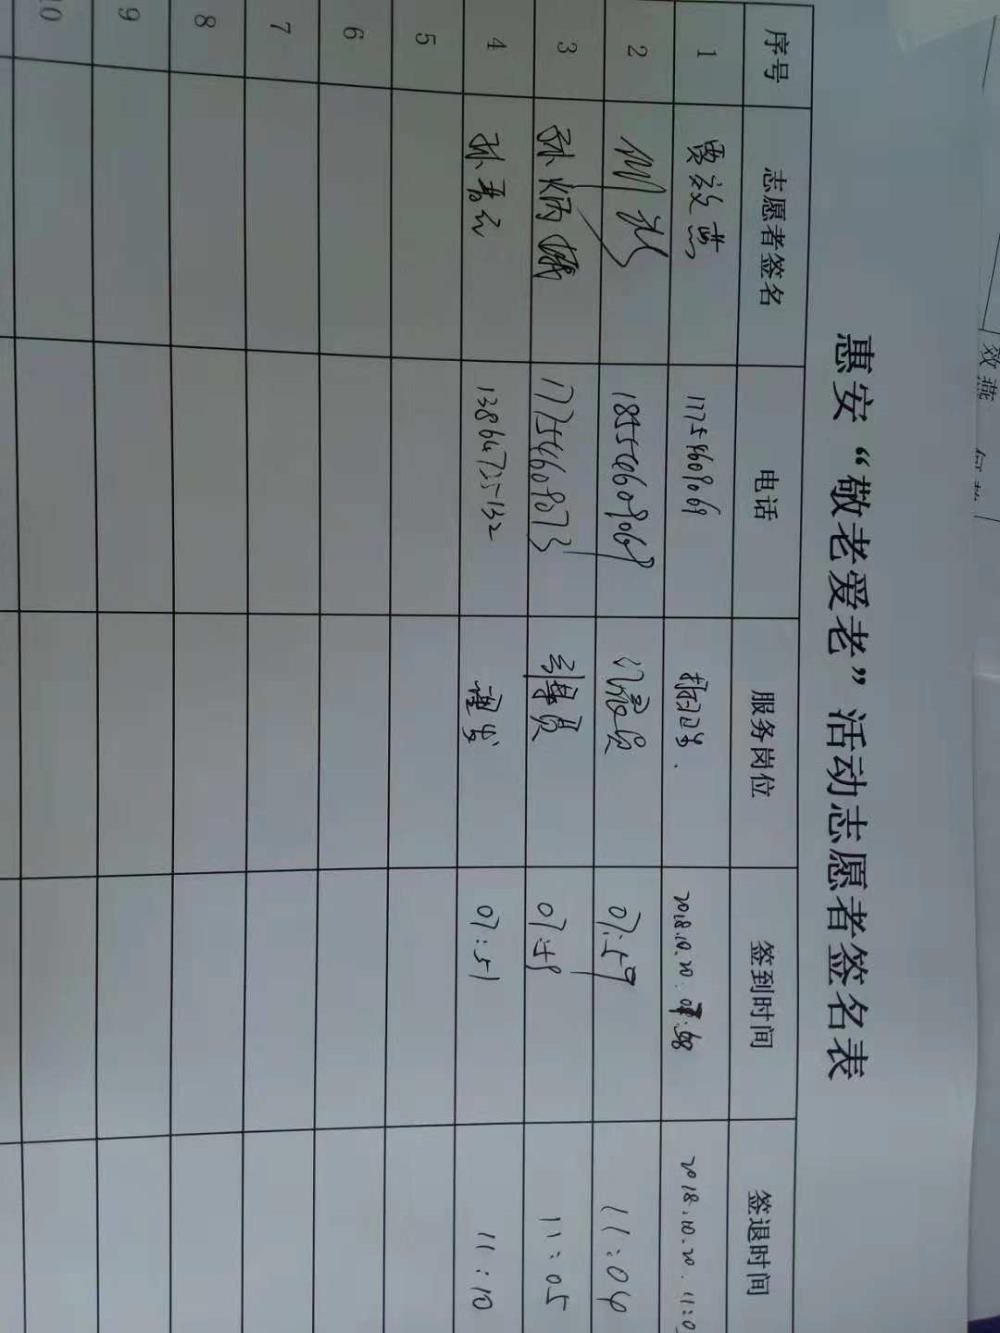 惠安“敬老爱老”活动志愿者签名表
序号 志愿者签名 电话 服务岗位 签到时间 签退时间
1 贾效燕 17754609069 2018.10.20. :58 2018.10.20. 11:0
2 18554609068 07:59 11:04
3 孙炳娥 17754609073 引导员 07:59 11:05
4 孙春云 13864735132 07:51 11:10
5
6
7
8
9
10
效燕